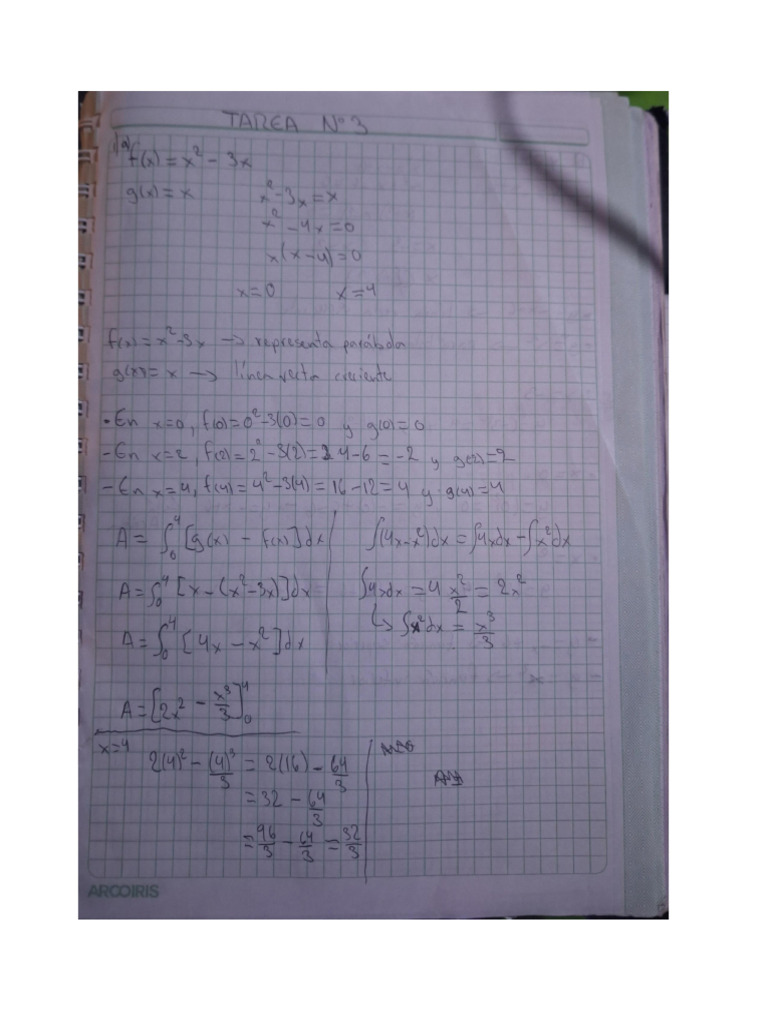 TAREA N°3
1) a) f(x) = x² - 3x
g(x) = x
x² - 3x = x
x² - 4x = 0
x(x - 4) = 0
x = 0 x = 4
f(x) = x² - 3x → representa parábola
g(x) = x → línea recta creciente
• En x=0, f(0) = 0² - 3(0) = 0 y g(0) = 0
- En x=2, f(2) = 2² - 3(2) = 4 - 6 = -2 y g(2) = 2
- En x=4, f(4) = 4² - 3(4) = 16 - 12 = 4 y g(4) = 4
A = ∫₀⁴ [g(x) - f(x)] dx
A = ∫₀⁴ [x - (x² - 3x)] dx
A = ∫₀⁴ [4x - x²] dx
∫(4x - x²)dx = ∫4xdx - ∫x²dx
∫4xdx = 4 x²/2 = 2x²
↳ ∫x²dx = x³/3
A = [2x² - x³/3]₀⁴
x=4
2(4)² - (4)³/3 = 2(16) - 64/3
= 32 - 64/3
= 96/3 - 64/3 = 32/3
ARCOIRIS